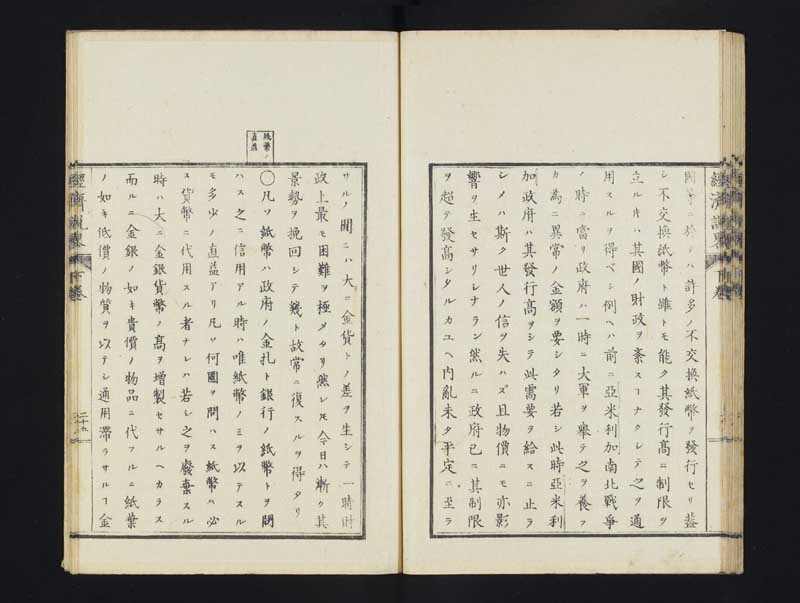 國ニ於テハ許多ノ不交換紙幣ヲ發行セリ蓋
シ不交換紙幣ト雖トモ能ク其發行高ニ制限ヲ
立ル片ハ其國ノ財政ヲ紊スヿナクシテ之ヲ通
用スルヲ得ベシ例ヘハ前ニ亞米利加南北戰爭
ノ時ニ當リ政府ハ一時ニ大軍ヲ擧テ之ヲ養フ
カ為ニ異常ノ金額ヲ要シタリ若シ此時亞米利
加政府ハ其發行高ヲシテ此需要ヲ給スニ止ラ
シメハ斯ク世人ノ信ヲ失ハズ且物價ニモ亦影
響ヲ生セサリシナラン然ルニ政府已ニ其制限
ヲ超テ發高シタルカユヘ內亂未タ平定ニ至ラ
經濟說畧 下卷
サルノ間ニハ大ニ金貨トノ差ヲ生シテ一時財
政上最モ困難ヲ極メタリ然レ𪜈今日ハ漸ク其
景勢ヲ挽回シテ幾ト故常ニ復スルヲ得タリ
紙幣ノ直益
〇凡ソ紙幣ハ政府ノ金札ト銀行ノ紙幣トヲ問
ハス之ニ信用アル時ハ唯紙幣ノミヲ以テスル
モ多少ノ直益アリ凡ソ何國ヲ問ハス紙幣ハ必
ス貨幣ニ代用スル者ナレハ若シ之ヲ廢棄スル
時ハ大ニ金銀貨幣ノ高ヲ增製セサルヘカラス
而ルニ金銀ノ如キ貴價ノ物品ニ代フルニ紙葉
ノ如キ低價ノ物質ヲ以テシ通用滯ラサルヿ金
經濟說畧 下卷 二十九